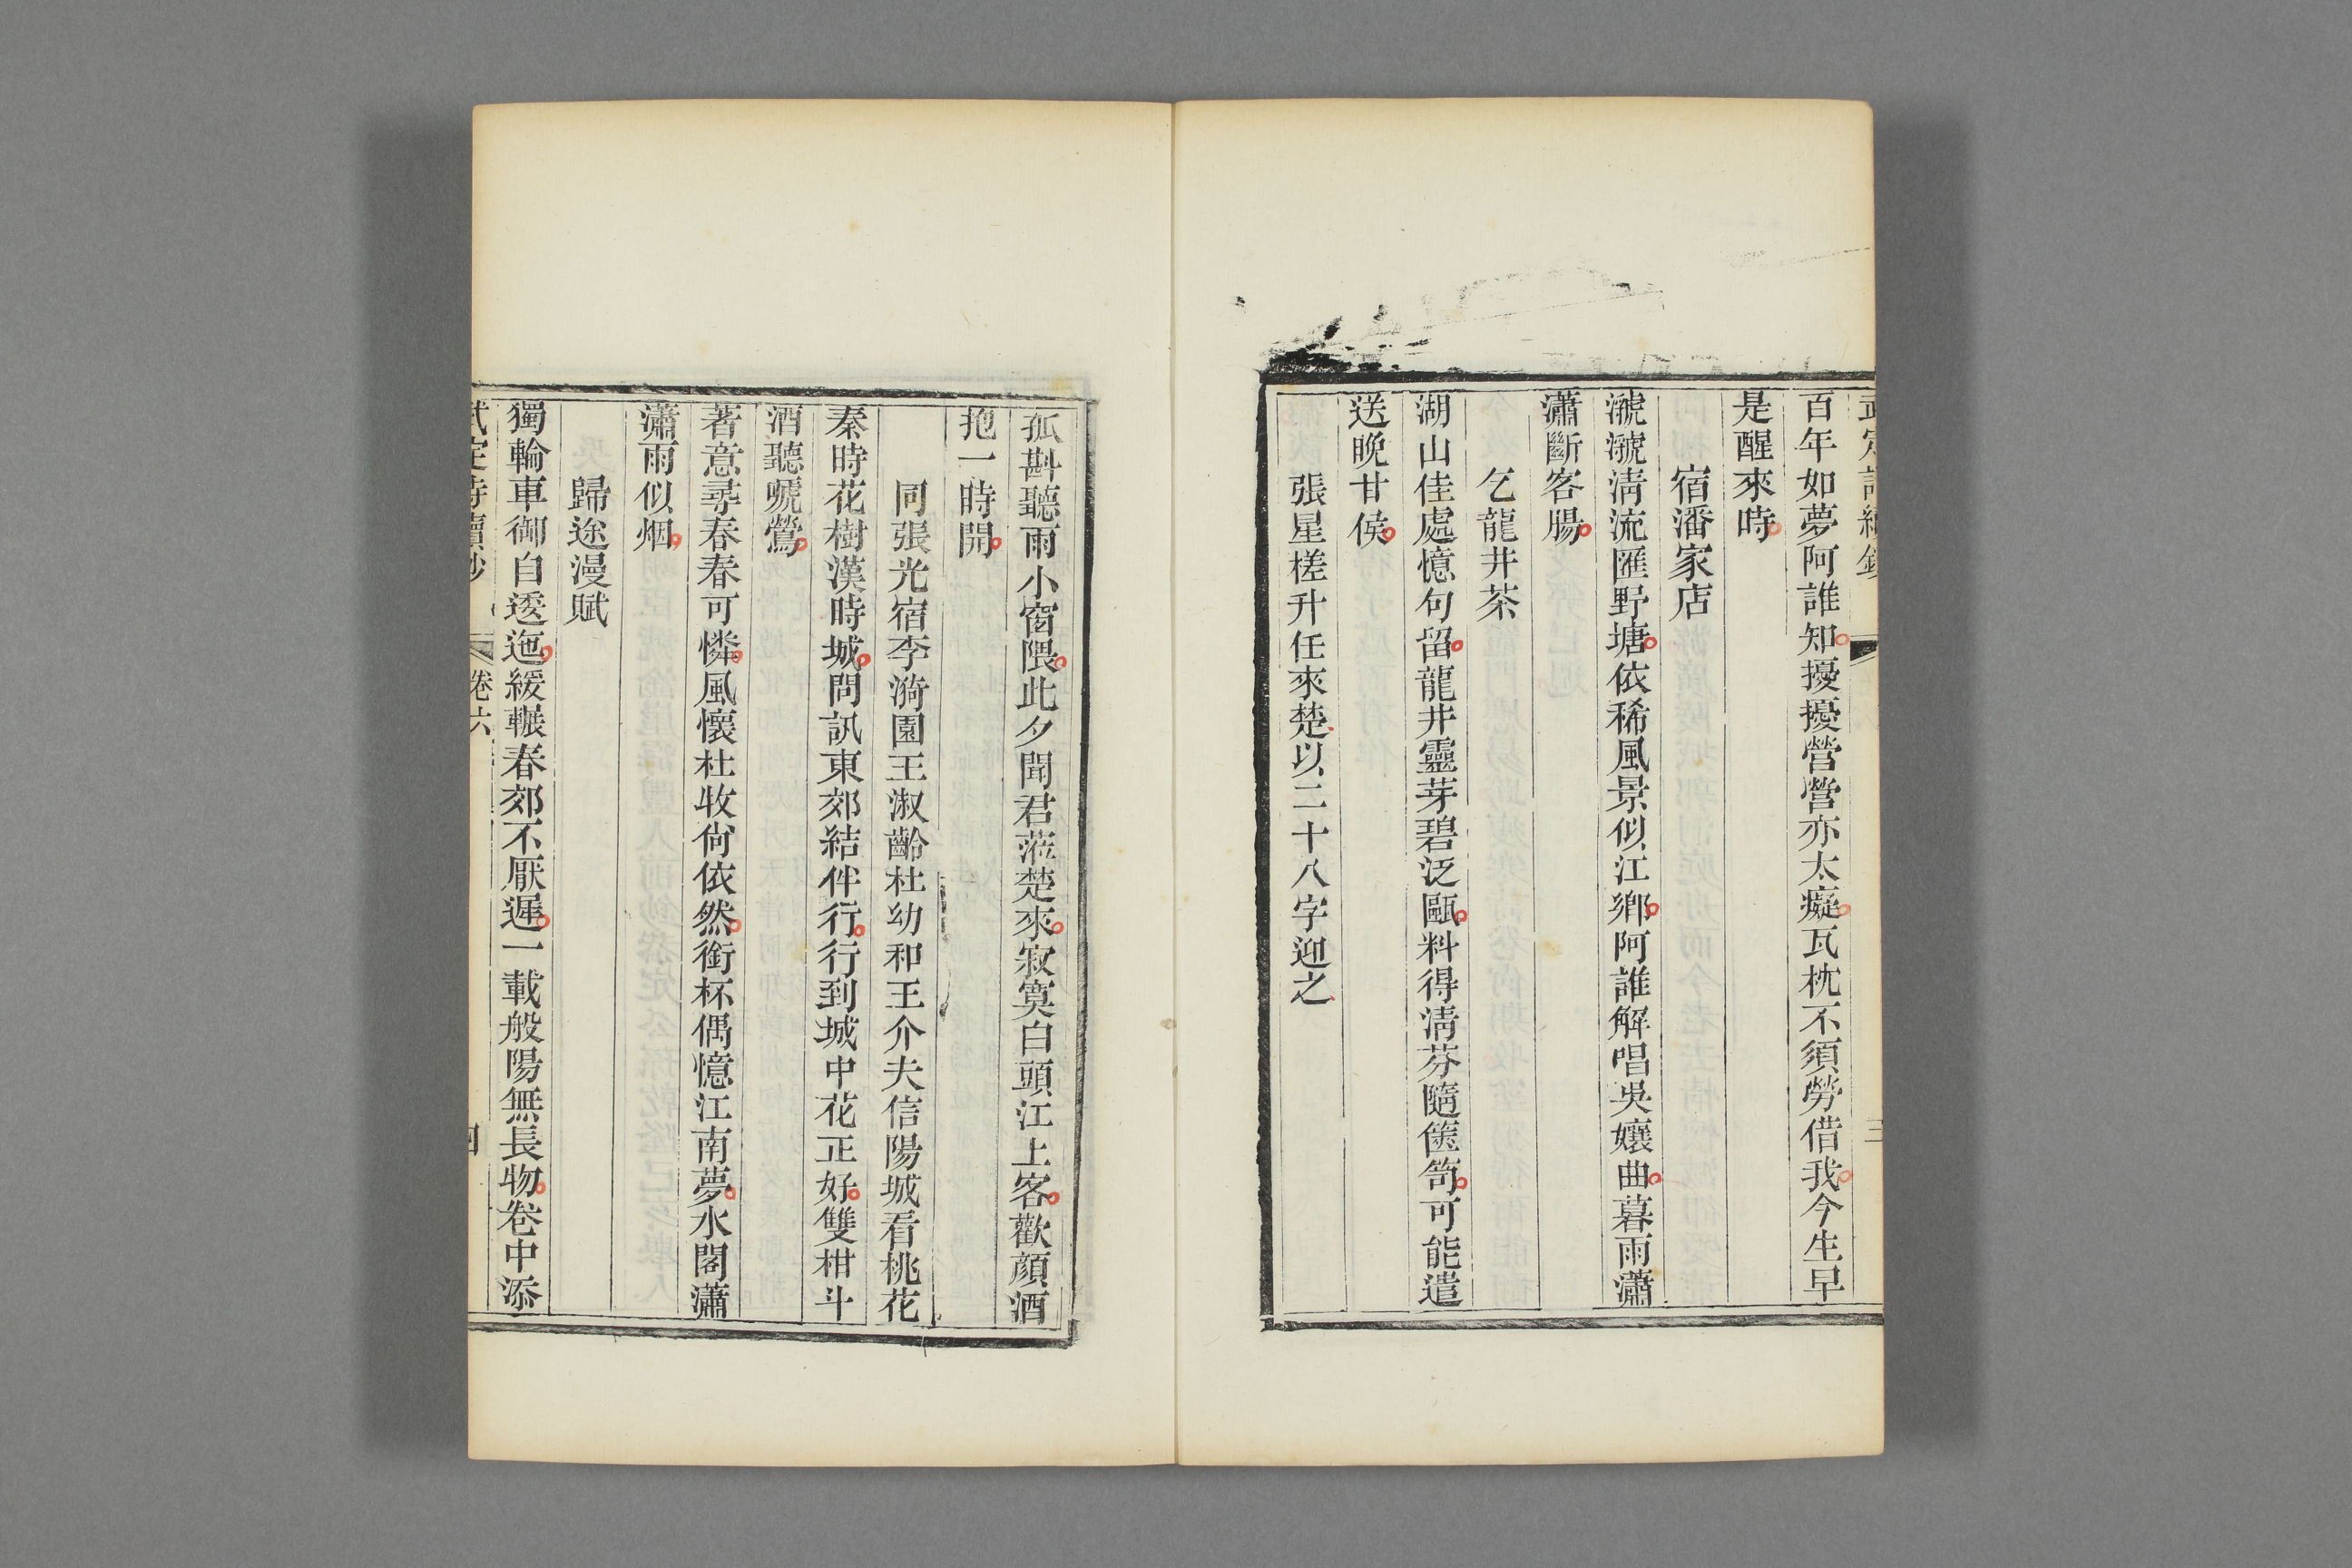 百年如夢阿誰知擾擾營營亦太癡瓦枕不須勞借我今生早
是醒來時
宿潘家店
濊濊淸流匯野塘依稀風景似江鄉阿誰解唱吳孃曲暮雨瀟
瀟斷客腸
乞龍井茶
湖山佳處憶句留龍井靈芽碧泛甌料得淸芬隨篋笥可能遣
送晚甘侯
張星槎升任來楚以二十八字迎之
孤斟聽雨小窗隈此夕聞君蒞楚來寂寞白頭江上客歡顏酒
抱一時開
同張光宿李漪園王淑齡杜幼和王介夫信陽城看桃花
秦時花樹漢時城問訊東郊結伴行行到城中花正好雙柑斗
酒聽嗁鶯
著意尋春春可憐風懷杜牧尙依然銜杯偶憶江南夢水閣瀟
瀟雨似烟
歸途漫賦
獨輪車御自逶迤緩輾春郊不厭遲一載般陽無長物卷中添
武定詩續鈔 卷六 四